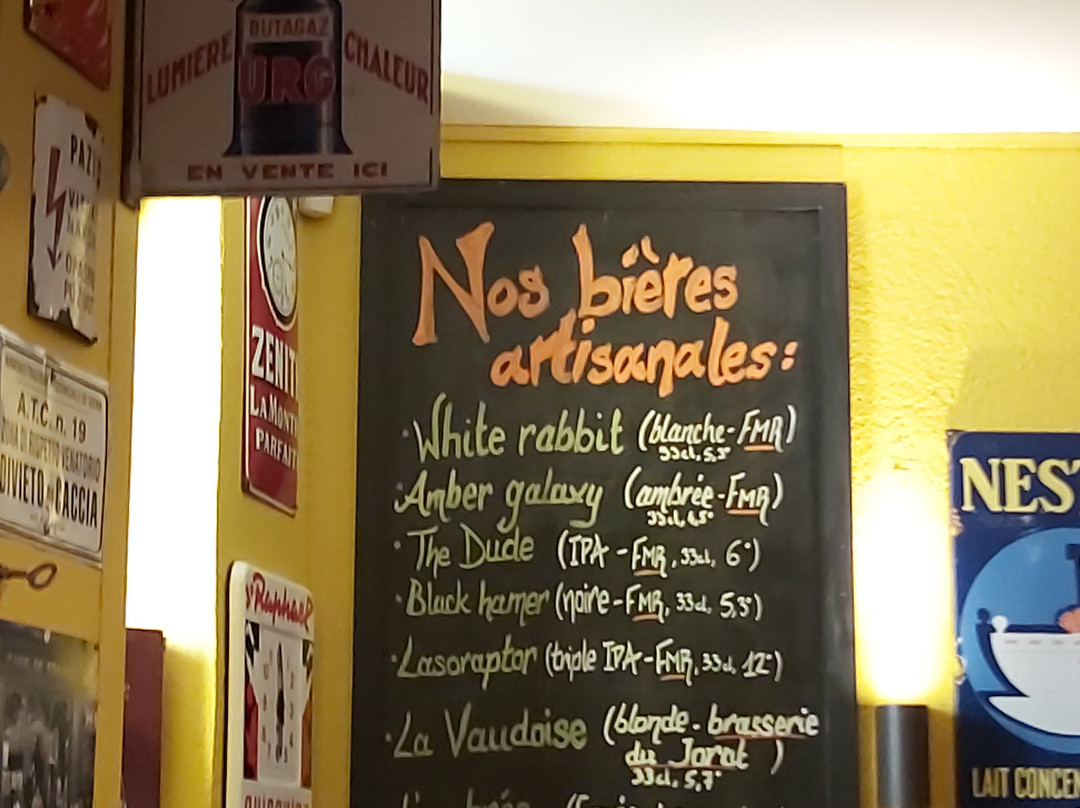 BUTAGAZ
LUMIÈRE URG CHALEUR
EN VENTE ICI
ZENITH
LA MONTRE
PARFAITE
A.T.C. n. 19
DIVIETO DI CACCIA
St Raphaël
Nos bières
artisanales:
· White rabbit (blanche - FMR)
33cl, 5,3°
· Amber galaxy (ambrée - FMR)
33cl, 4,5°
· The Dude (IPA - FMR, 33cl, 6°)
· Black hamer (noire - FMR, 33cl, 5,3°)
· Lasoraptor (triple IPA - FMR, 33cl, 12°)
· La Vaudoise (blonde - brasserie
du Jorat )
33cl, 5,7°
NEST
LAIT CONCEN